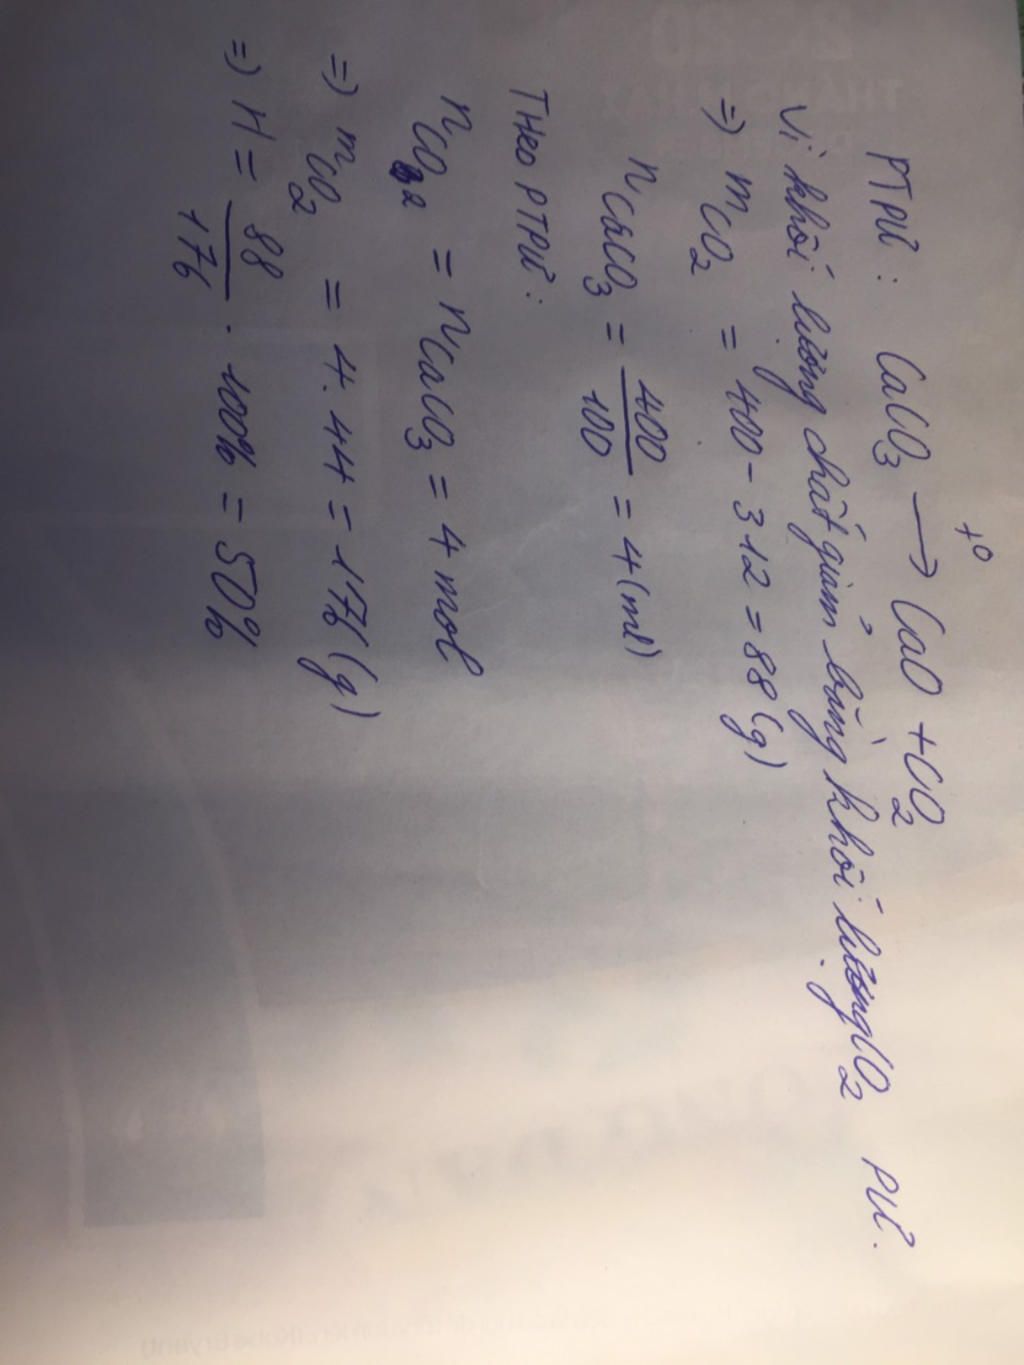 t⁰
PTPƯ : CaCO₃ ⟶ CaO + CO₂
Vì khối lượng chất giảm bằng khối lượng CO₂ PƯ.
=> mCO₂ = 400 - 312 = 88 (g)
nCaCO₃ = 400/100 = 4 (ml)
THeo PTPƯ :
nCO₂ = nCaCO₃ = 4 mol
=> mCO₂ = 4. 44 = 176 (g)
=> H = 88/176 . 100% = 50%